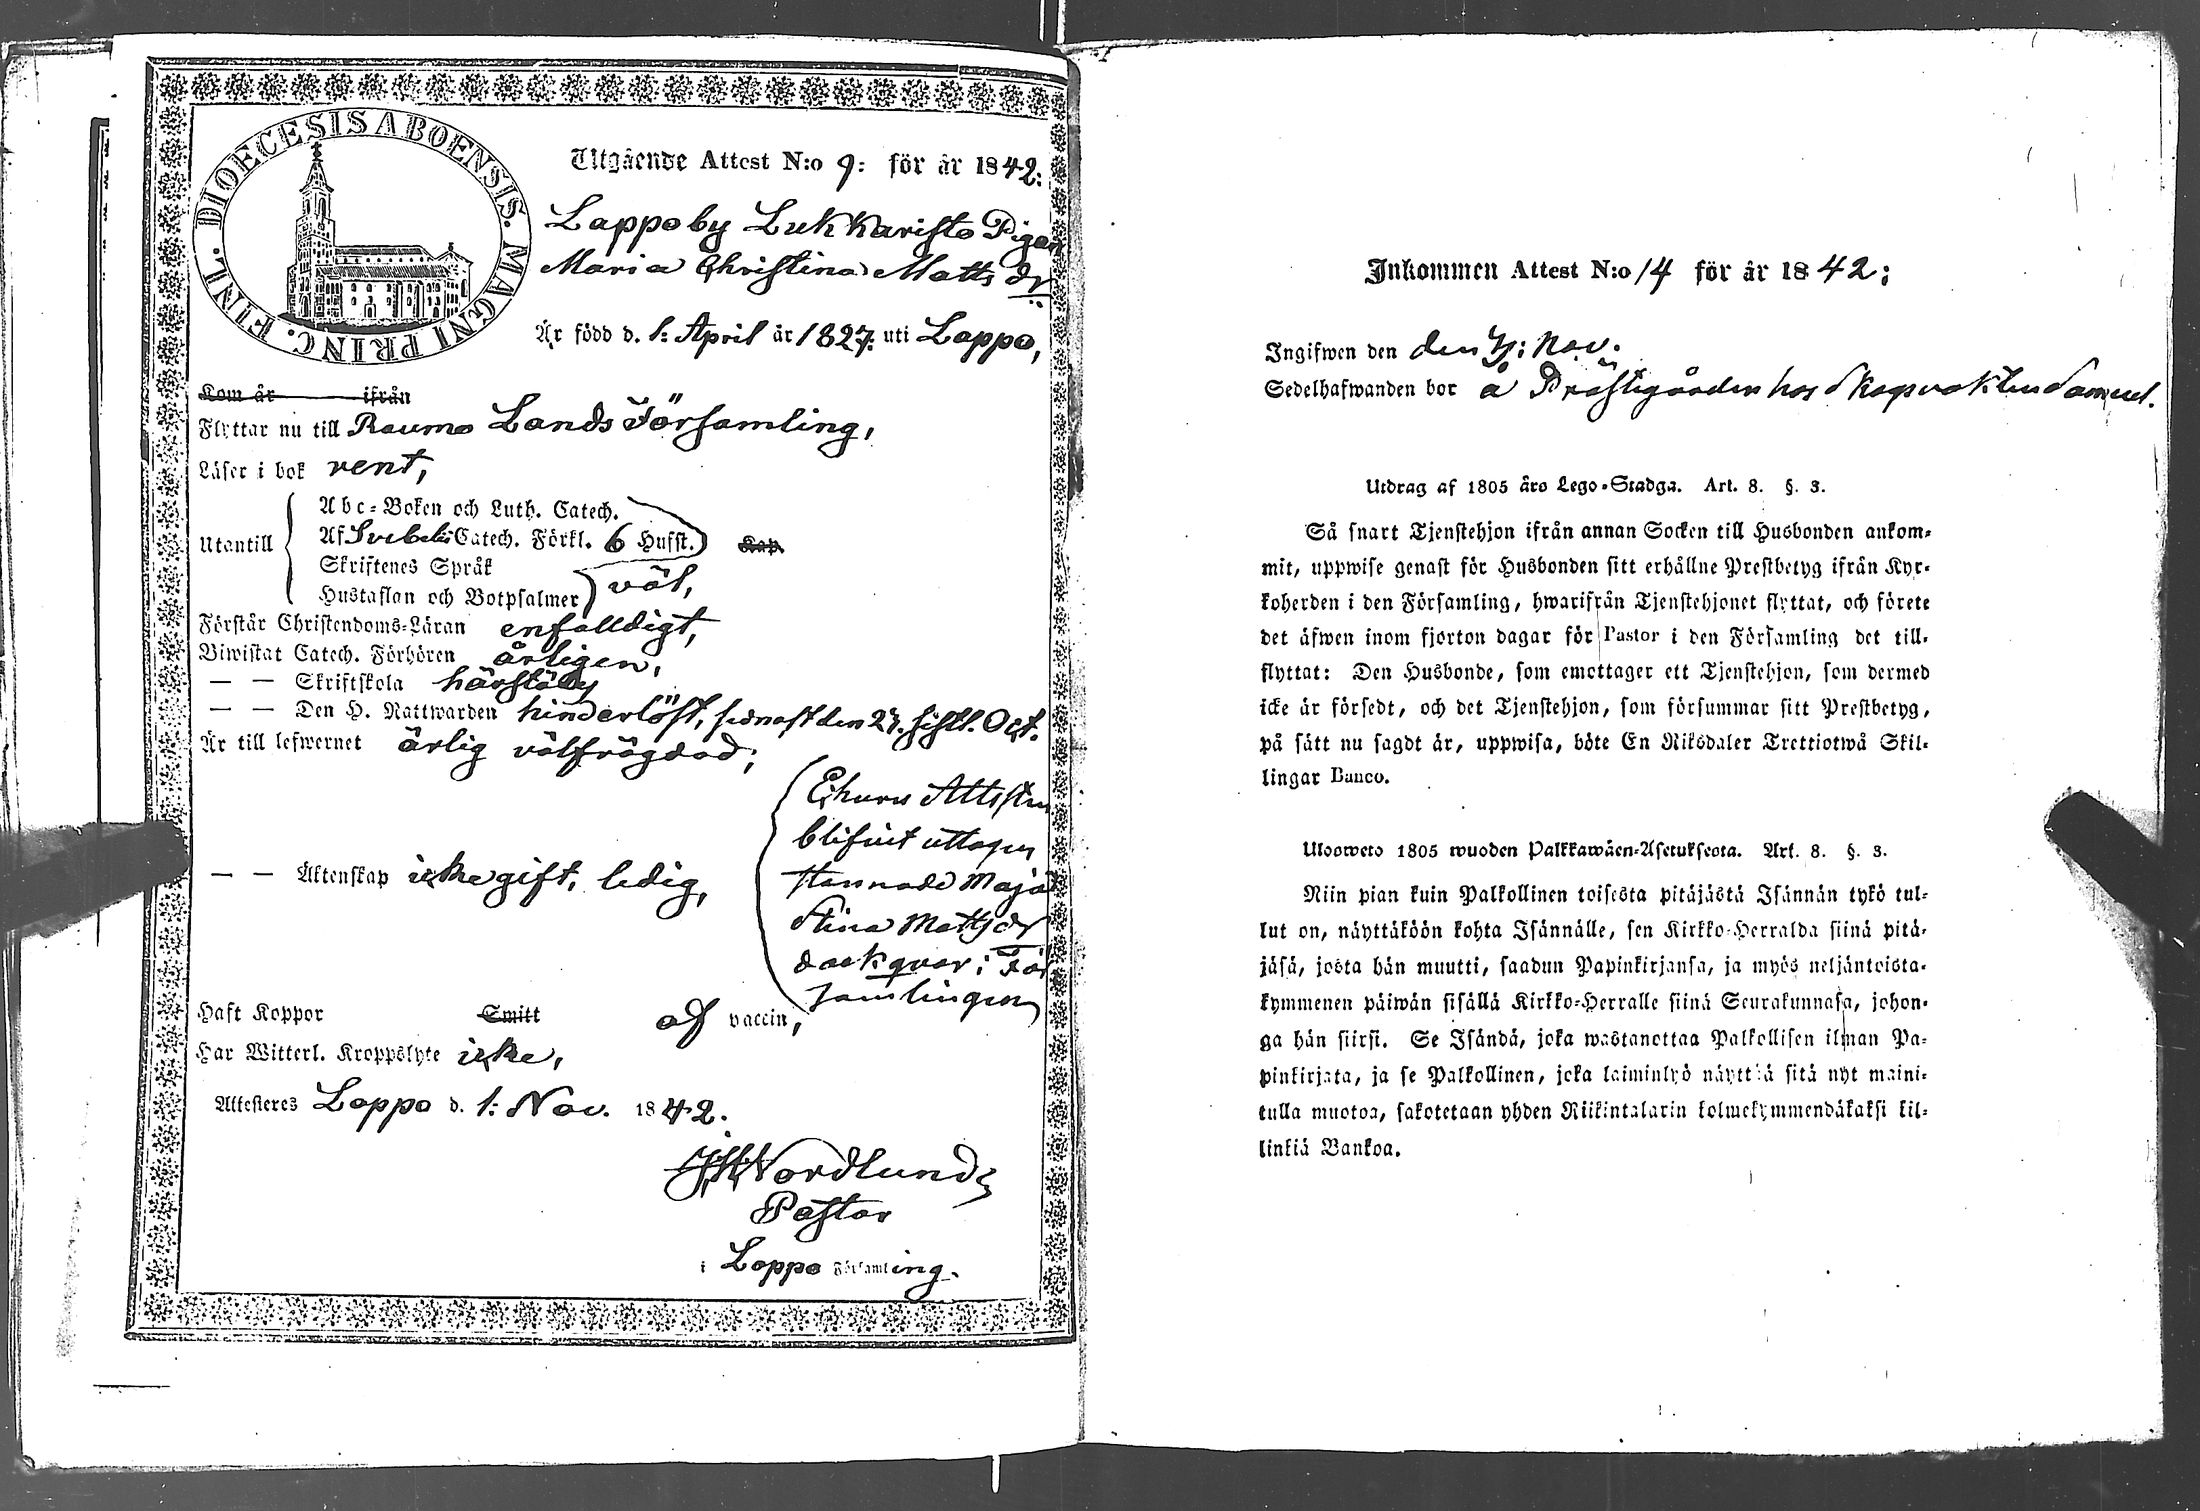 DIOECESIS ABOENSIS. MAGNI PRINC. FINL.
Utgående Attest N:o 9: för år 1842:
Lappo by Lukkaristo Pigan
Maria Christina Matts dr
Är född d. 1: April år 1827: uti Lappo,
Kom år ifrån
Flyttar nu till Raumo Lands Församling,
Läser i bok rent,
Abc-Boken och Luth. Catech.
Utantill Af Svebelii Catech. Förkl. 6 Hufst. Kap.
Skriftenes Språk
Hustaflan och Botpsalmer väl,
Förstår Christendoms-Läran enfalldigt,
Biwistat Catech. Förhören årligen,
— — Skriftskola härstädes
— — Den H. Nattwarden hinderlöst, sednast den 27. sistl. Oct.
Är till lefwernet ärlig välfrägdad;
Ehuru Attesten
blifvit uttagen
stannade Maja
Stina Mattsdr
dock qvar i För
samlingen
— — Äktenskap icke gift, ledig,
Haft Koppor Smitt af vaccin,
Har Witterl. Kroppslyte icke,
Attesteres Lappo d. 1: Nov. 1842.
Nordlund
Pastor
i Lappo Församling.
Inkommen Attest N:o 14 för år 1842;
Ingifwen den den 7: Nov.
Sedelhafwanden bor å Prästegården hos Skogvakten Samuel.
Utdrag af 1805 års Lego-Stadga. Art. 8. §. 3.
Så snart Tjenstehjon ifrån annan Socken till Husbonden ankom-
mit, uppwise genast för Husbonden sitt erhållne Prestbetyg ifrån Kyr-
koherden i den Församling, hwarifrån Tjenstehjonet flyttat, och förete
det äfwen inom fjorton dagar för Pastor i den Församling det till-
flyttat: Den Husbonde, som emottager ett Tjenstehjon, som dermed
icke är försedt, och det Tjenstehjon, som försummar sitt Prestbetyg,
på sätt nu sagdt är, uppwisa, böte En Riksdaler Trettiotwå Skil-
lingar Banco.
Ulosweto 1805 wuoden Palkkawäen-Asetuksesta. Art. 8. §. 3.
Niin pian kuin Palkollinen toisesta pitäjästä Isännän tykö tul-
lut on, näyttäköön kohta Isännälle, sen Kirkko-Herralda siinä pitä-
jäsä, josta hän muutti, saadun Papinkirjansa, ja myös neljäntoista-
kymmenen päiwän sisällä Kirkko-Herralle siinä Seurakunnasa, johon-
ga hän siirsi. Se Isändä, joka wastanottaa Palkollisen ilman Pa-
pinkirjata, ja se Palkollinen, joka laiminlyö näyttää sitä nyt maini-
tulla muotoa, sakotetaan yhden Riikintalarin kolmekymmendäkaksi kil-
linkiä Bankoa.